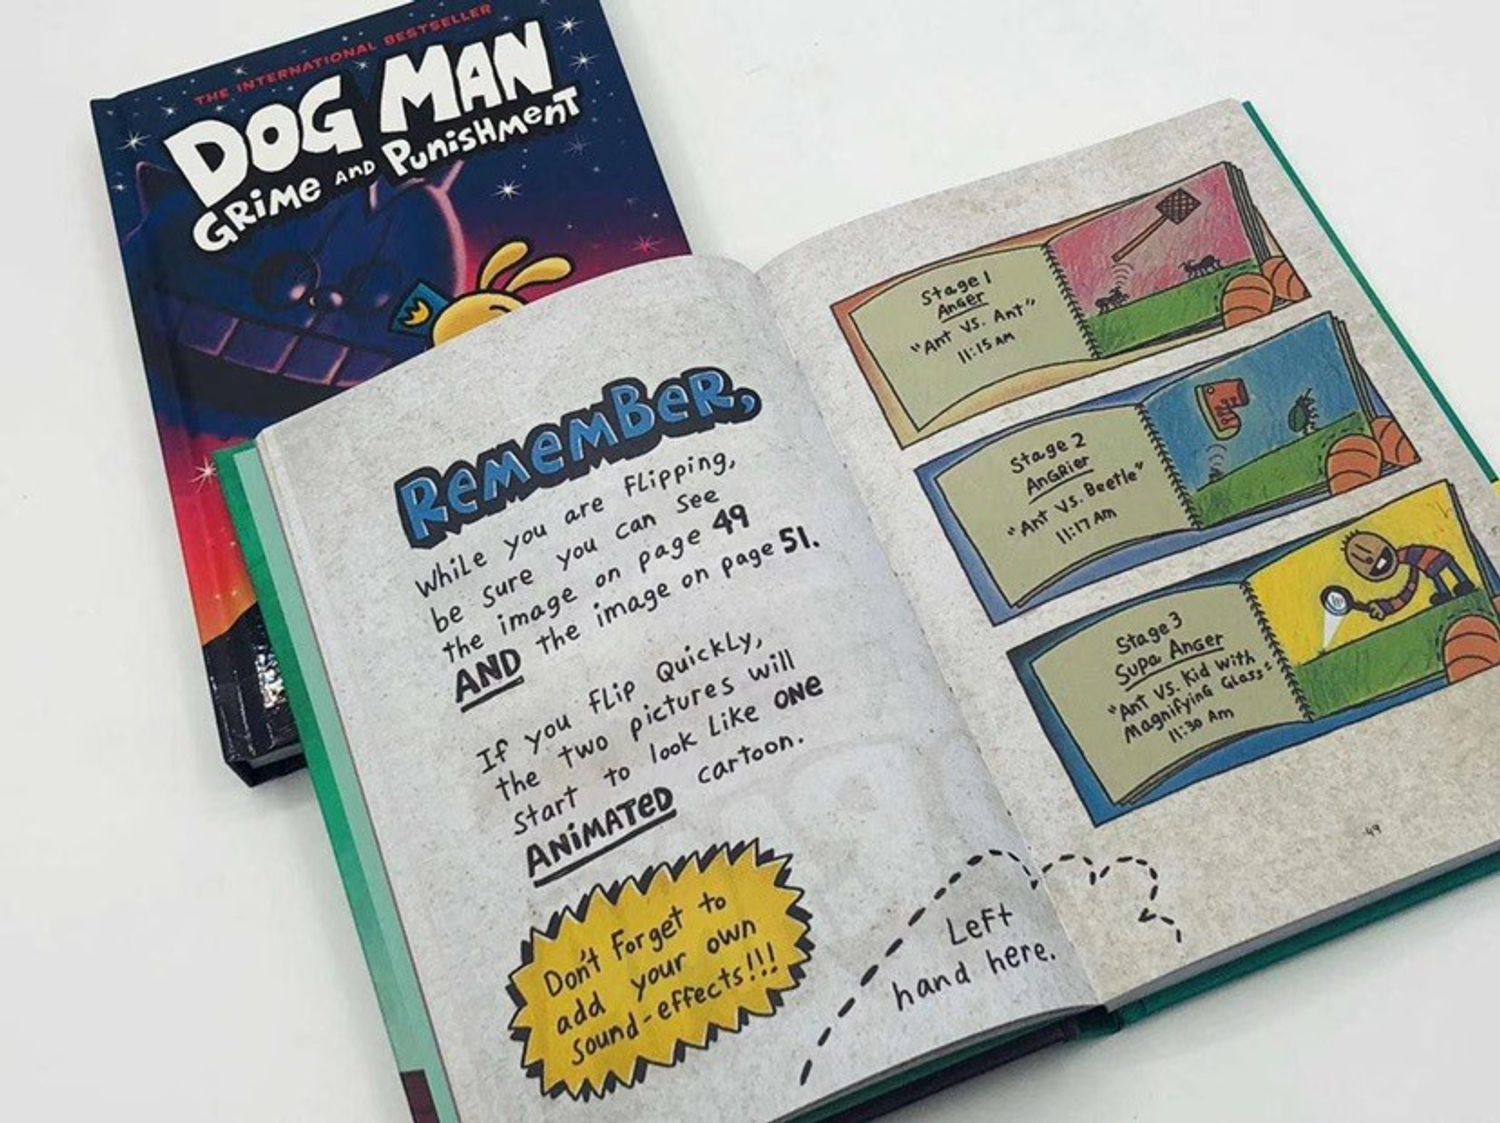 THE INTERNATIONAL BESTSELLER
DOG MAN
GRiMe AND PunisHMenT
RememBeR,
While you are FLipping,
be sure you can see
the image on page 49
AND the image on page 51.
If you FLip QuickLy,
the two pictures will
start to look Like ONE
ANiMATeD cartoon.
Don't Forget to
add your own
sound-effects!!!
Left
hand here.
Stage 1
Anger
"Ant vs. Ant"
11:15 AM
Stage 2
AnGRier
"Ant vs. Beetle"
11:17 Am
Stage 3
Supa Anger
"Ant vs. Kid with
Magnifying Glass"
11:30 Am
49